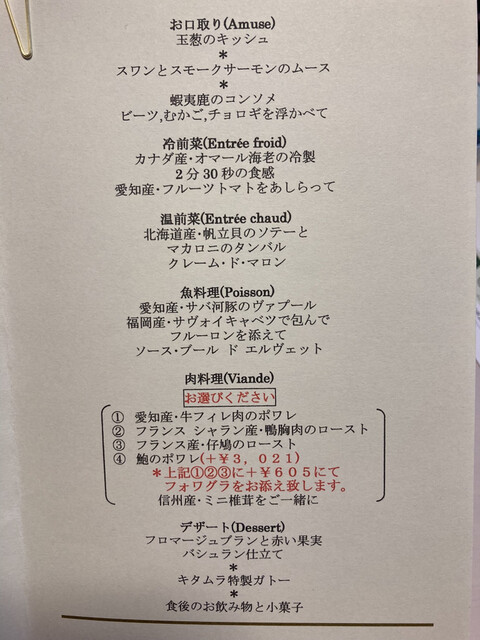 お口取り(Amuse)
玉葱のキッシュ
＊
スワンとスモークサーモンのムース
＊
蝦夷鹿のコンソメ
ビーツ,むかご,チョロギを浮かべて
冷前菜(Entrée froid)
カナダ産･オマール海老の冷製
２分３０秒の食感
愛知産･フルーツトマトをあしらって
温前菜(Entrée chaud)
北海道産･帆立貝のソテーと
マカロニのタンバル
クレーム･ド･マロン
魚料理(Poisson)
愛知産･サバ河豚のヴァプール
福岡産･サヴォイキャベツで包んで
フルーロンを添えて
ソース･ブール ド エルヴェット
肉料理(Viande)
お選びください
① 愛知産･牛フィレ肉のポワレ
② フランス シャラン産･鴨胸肉のロースト
③ フランス産･仔鳩のロースト
④ 鮑のポワレ(＋￥３，０２１)
＊上記①②③に＋￥６０５にて
フォワグラをお添え致します。
信州産･ミニ椎茸をご一緒に
デザート(Dessert)
フロマージュブランと赤い果実
バシュラン仕立て
＊
キタムラ特製ガトー
＊
食後のお飲み物と小菓子